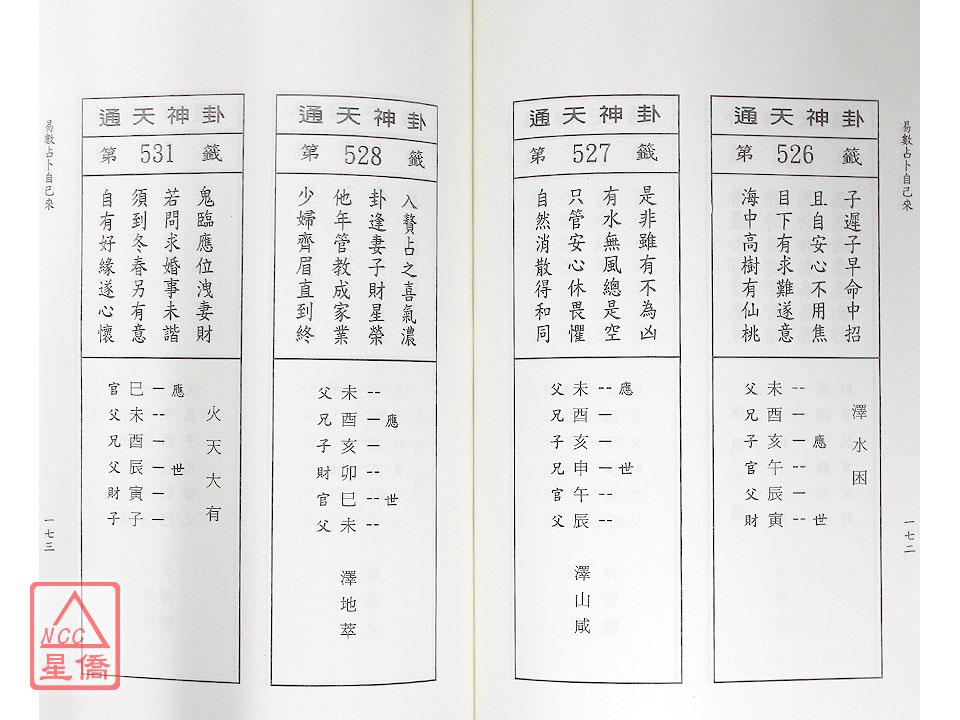 易數占卜自己來
一七二
通天神卦
第 526 籤
子遲子早命中招
且自安心不用焦
目下有求難遂意
海中高樹有仙桃
父 未 --
兄 酉 —
子 亥 — 應
官 午 --
父 辰 —
財 寅 -- 世
澤水困
通天神卦
第 527 籤
是非雖有不為凶
有水無風總是空
只管安心休畏懼
自然消散得和同
父 未 -- 應
兄 酉 —
子 亥 —
兄 申 — 世
官 午 --
父 辰 --
澤山咸
通天神卦
第 528 籤
入贅占之喜氣濃
卦逢妻子財星榮
他年管教成家業
少婦齊眉直到終
父 未 --
兄 酉 — 應
子 亥 —
財 卯 --
官 巳 -- 世
父 未 --
澤地萃
通天神卦
第 531 籤
鬼臨應位洩妻財
若問求婚事未諧
須到冬春另有意
自有好緣遂心懷
官 巳 — 應
父 未 --
兄 酉 —
父 辰 — 世
財 寅 —
子 子 —
火天大有
易數占卜自己來
一七三
NCC
星僑